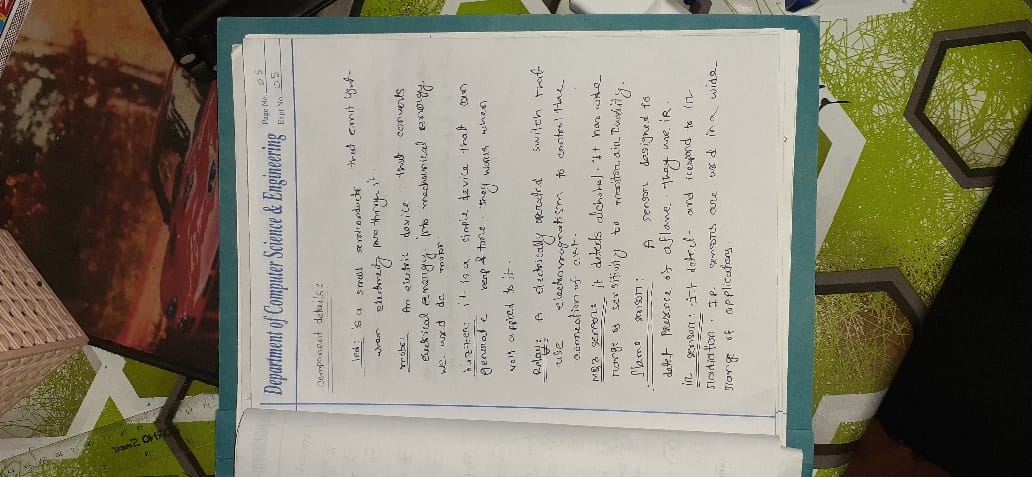 Department of Computer Science & Engineering
Page No. 05
Expt. No. 05
component details:
led: is a small semiconductor that emit light
when electricity pass through it.
motor: An electric device that converts
electrical energy into mechanical energy.
we used dc motor.
buzzer: it is a simple device that can
generate beep & tone. they works when
volt applied to it.
Relay: A electrically operated switch that
use electromagnetism to control the
connection of
MQ3 sensor: it detects alchohol. It has wide
range & sensitivity to
flame sensor: A sensor designed to
detet presence of a flame. They use IR.
ir sensor: It detect and respond to in
radiation IR sensors are used in a wide
range of applications.